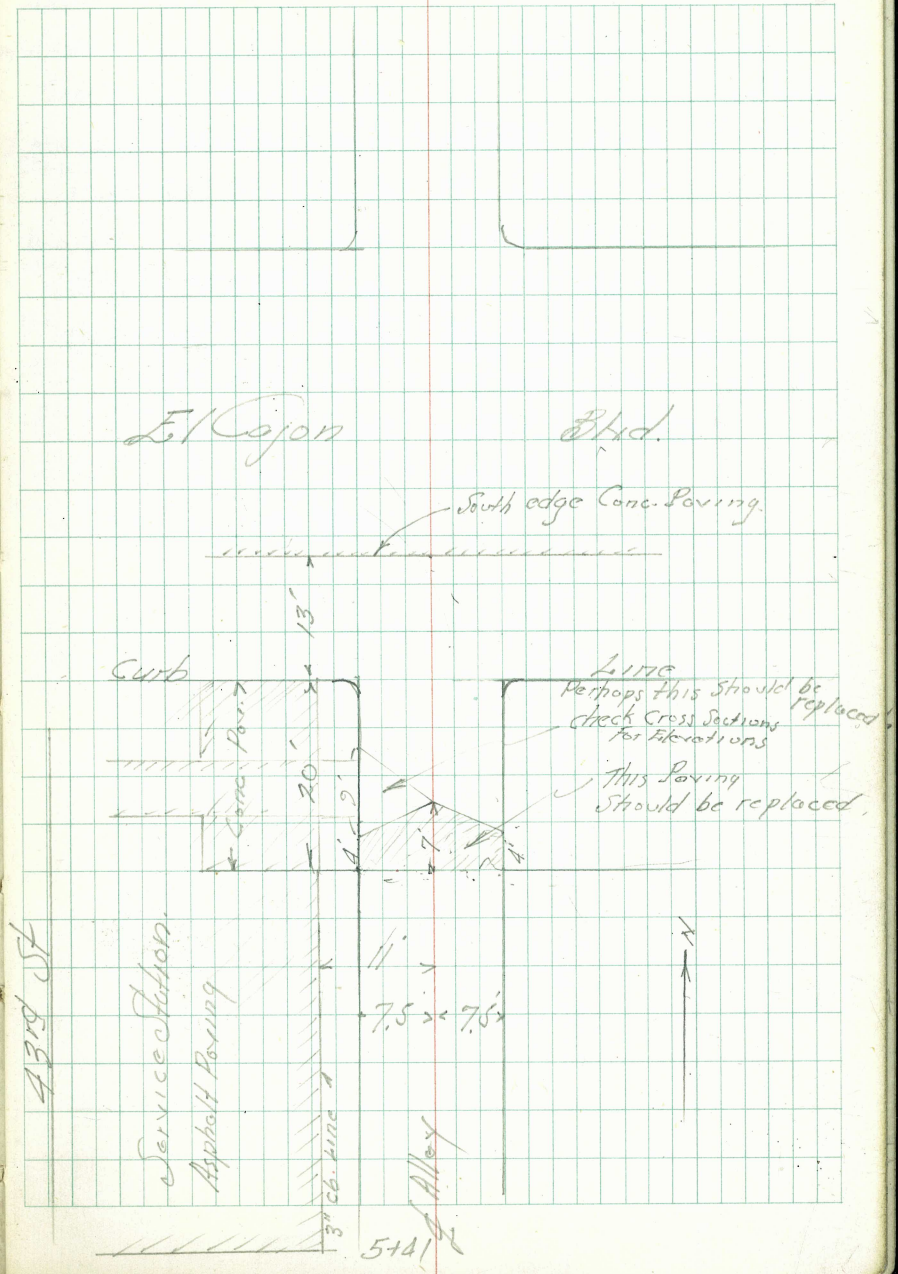 El Cajon Blvd.
South edge Conc. Paving.
13'
Curb Line
Perhaps this should be
replaced.
check Cross Sections
For Elevations
This Paving
Should be replaced.
Conc. Pav.
20'
9'
4'
7'
4'
N
11'
7.5' 7.5'
43rd St
Service Station.
Asphalt Paving
3" cb. Line
℄ Alley
5+41